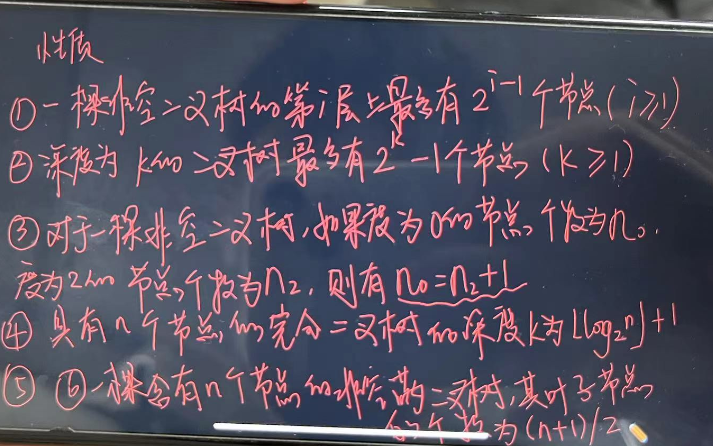 性质
①一棵非空二叉树的第i层上最多有2^{i-1}个节点(i≥1)
②深度为k的二叉树最多有2^k-1个节点(k≥1)
③对于一棵非空二叉树,如果度为0的节点个数为n₀.
度为2的节点个数为n₂,则有n₀=n₂+1
④具有n个节点的完全二叉树的深度k为⌊log₂n⌋+1
⑤⑥一棵含有n个节点的非空满二叉树,其叶子节点
的个数为(n+1)/2